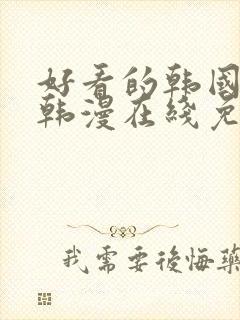 好看的韩国
韩漫在线免
我需要後悔藥